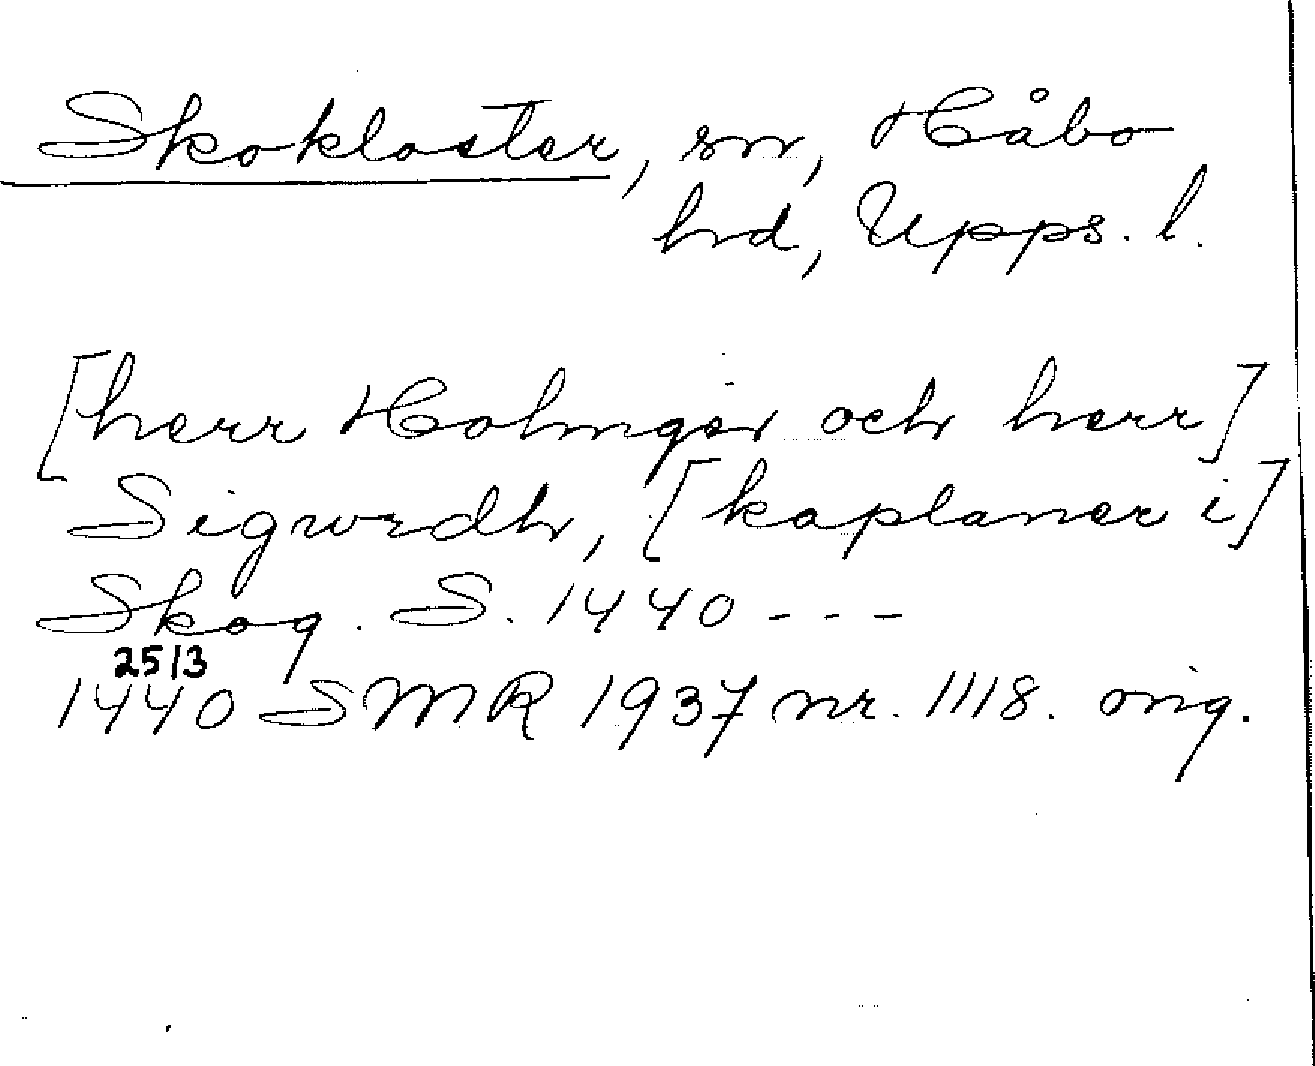 Skokloster, sn, Håbo
hd, Upps. l.
[herr Holmger och herr]
Sigurdh, [kaplaner i]
Skog. S. 1440 - - -
25/3
1440 SMR 1937 nr. 1118. orig.